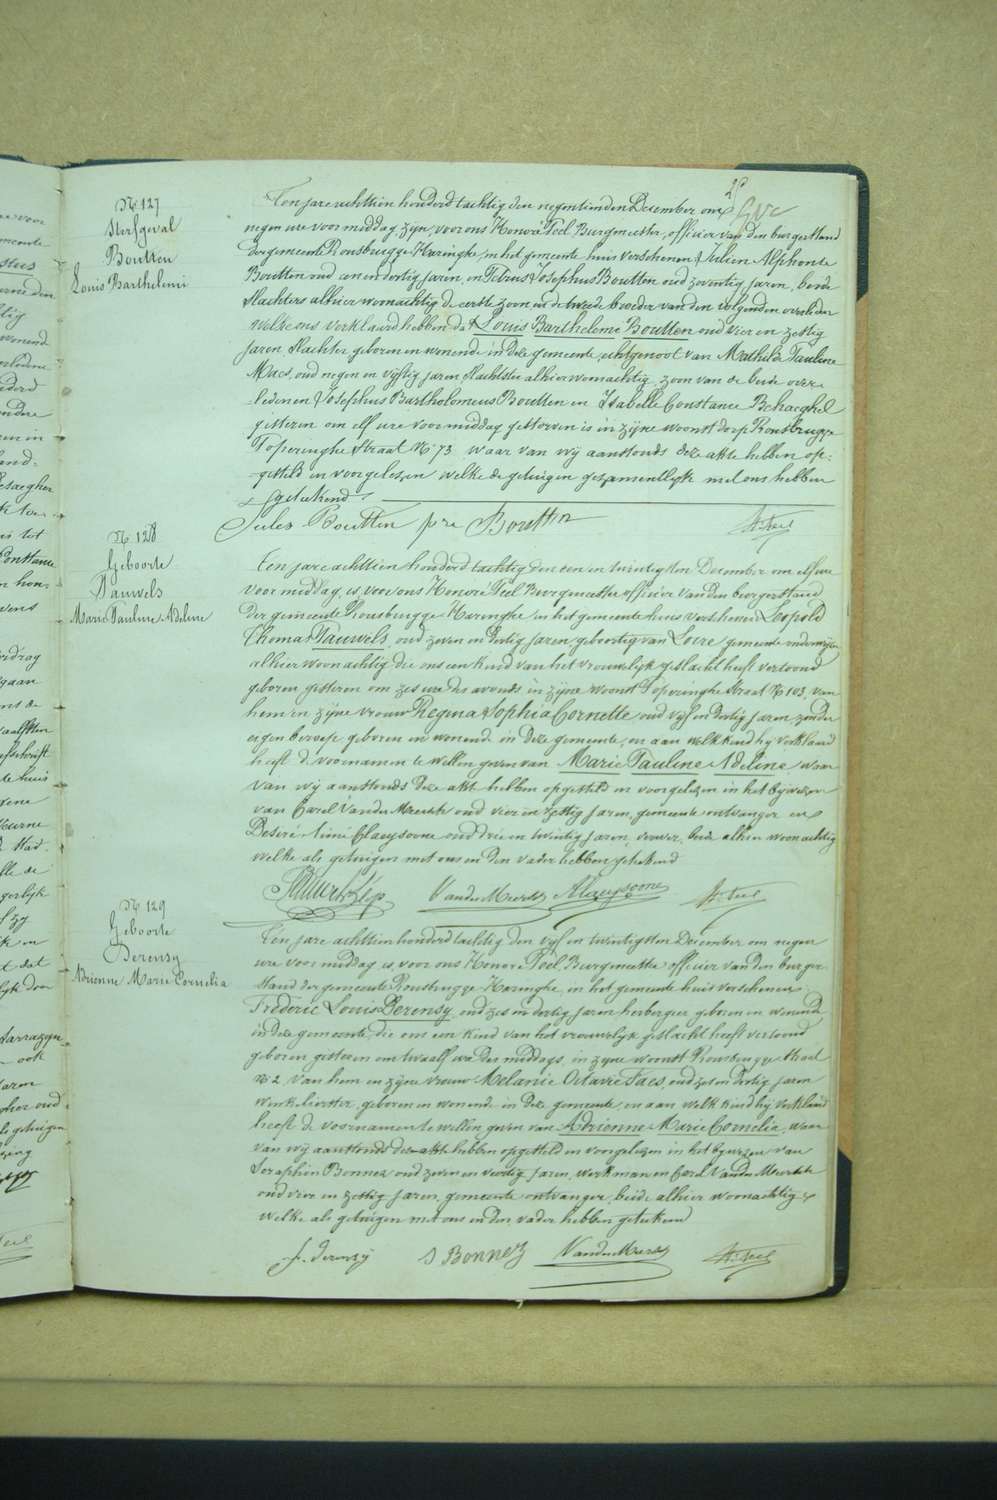 N° 127
Sterfgeval
Boutten
Louis Barthelemi
Ten jare achttien honderd tachtig den negentienden December om
negen ure voor middag, zijn, voor ons Honoré Teel Burgmeester, officier van den burgerstand
der gemeente Rousbrugge Haringhe, in het gemeente huis verschenen Julien Alphonse
Boutten oud een en dertig jaren, en Petrus Josephus Boutten oud zeventig jaren, beide
slachters alhier woonachtig de eerste zoon en de tweede broeder van den volgenden overleden
welke ons verklaard hebben dat Louis Barthelemi Boutten oud vier en zestig
jaren, slachter geboren en wonende in deze gemeente, echtgenoot van Mathilde Pauline
Maes, oud negen en vijftig jaren slachtster alhier woonachtig, zoon van de beide over-
ledenen Josephus Bartholomeus Boutten en Isabelle Constance Behaeghel
gisteren om elf ure voor middag gestorven is in zijne woonst dorp Rousbrugge
Poperinghe straat N° 73 waar van wij aanstonds deze akte hebben op-
gesteld en voorgelezen welke de getuigen gezamentlijk met ons hebben
geteekend
Jules Boutten pre Boutten H. Teel
N° 128
Geboorte
Pauwels
Marie Pauline Adeline
Ten jare achttien honderd tachtig den een en twintigsten December om elf ure
voor middag, is, voor ons Honoré Teel Burgmeester officier van den burgerstand
der gemeente Rousbrugge Haringhe in het gemeente huis verschenen Leopold
Thomas Pauwels, oud zeven en dertig jaren geboortig van Loere gemeente onderwijzer
alhier woonachtig die ons een kind van het vrouwelijk geslacht heeft vertoond
geboren gisteren om zes ure des avonds in zijne woonst Poperinghe straat N° 103, van
hem en zijne vrouw Regina Sophia Cornette oud vijf en dertig jaren zonder
eigen beroep geboren en wonende in deze gemeente, en aan welk kind hij verklaard
heeft de voornamen te willen geven van Marie Pauline Adeline, waar
van wij aanstonds deze akte hebben opgesteld en voorgelezen in het bijwezen
van Carel Vander Meersch oud vier en zestig jaren, gemeente ontvanger en
Desiré Aimé Claeysoone oud drie en twintig jaren, brouwer, beide alhier woonachtig
welke als getuigen met ons en den vader hebben geteekend
Pauwels Lep VanderMeersch A Claeysoone H. Teel
N° 129
Geboorte
Derensy
Adrienne Marie Cornelia
Ten jare achttien honderd tachtig den vijf en twintigsten December om negen
ure voor middag is, voor ons Honoré Teel Burgmeester officier van den burger
stand der gemeente Rousbrugge Haringhe, in het gemeente huis verschenen
Frederic Louis Derensy, oud zes en dertig jaren herbergier geboren en wonende
in deze gemeente, die ons een kind van het vrouwelijk geslacht heeft vertoond
geboren gisteren om twaalf ure des middags, in zijne woonst Rousbrugge straat
N° 2, van hem en zijne vrouw Melanie Octavie Faes, oud zes en dertig jaren
winkelierster, geboren en wonende in deze gemeente, en aan welk kind hij verklaard
heeft de voornamen te willen geven van Adrienne Marie Cornelia, waar
van wij aanstonds deze akte hebben opgesteld en voorgelezen in het bijwezen van
Seraphin Bonnez oud zeven en veertig jaren, werkman en Carel Vander Meersch
oud vier en zestig jaren, gemeente ontvanger, beide alhier woonachtig
welke als getuigen met ons en den vader hebben geteekend
f. Derensy S Bonnez VanderMeersch H. Teel